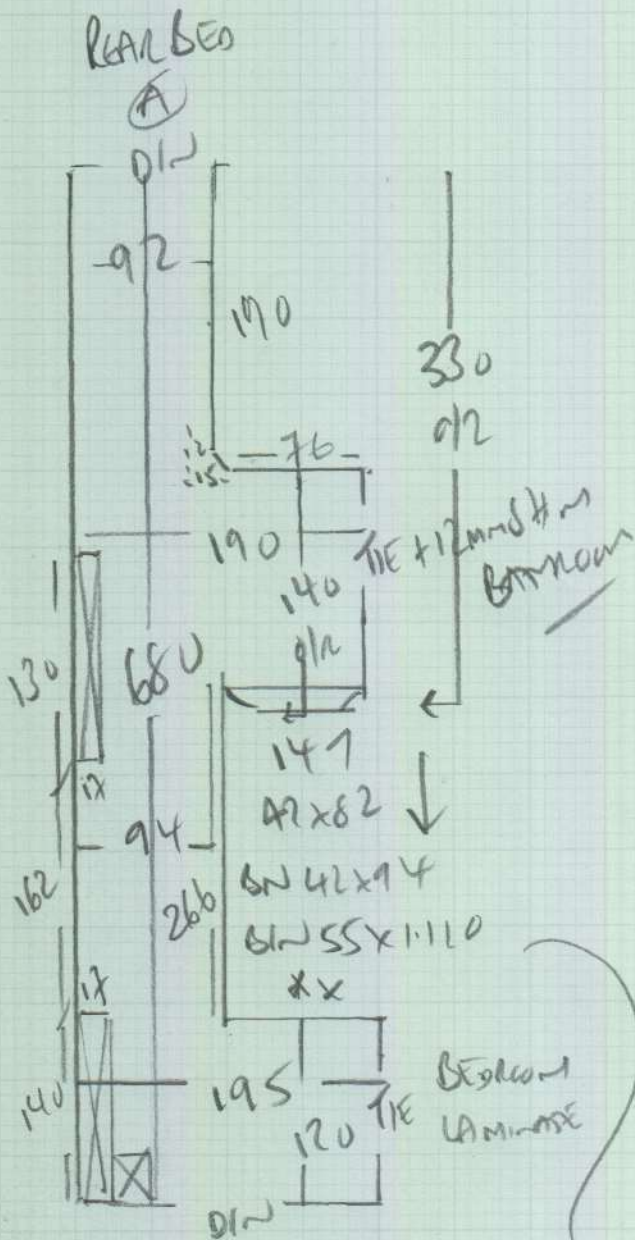 REAR BED
A
DIN
92
170
330
0/2
12
15
76
190
TIE + 12mm SHM
BATHROOM
140
0/2
130
680
17
147
42 x 82
94
BN 42 x 94
162
266
BIN 55 x 1.120
xx
17
195
TIE
BEDROOM
LAMINATE
140
120
DIN